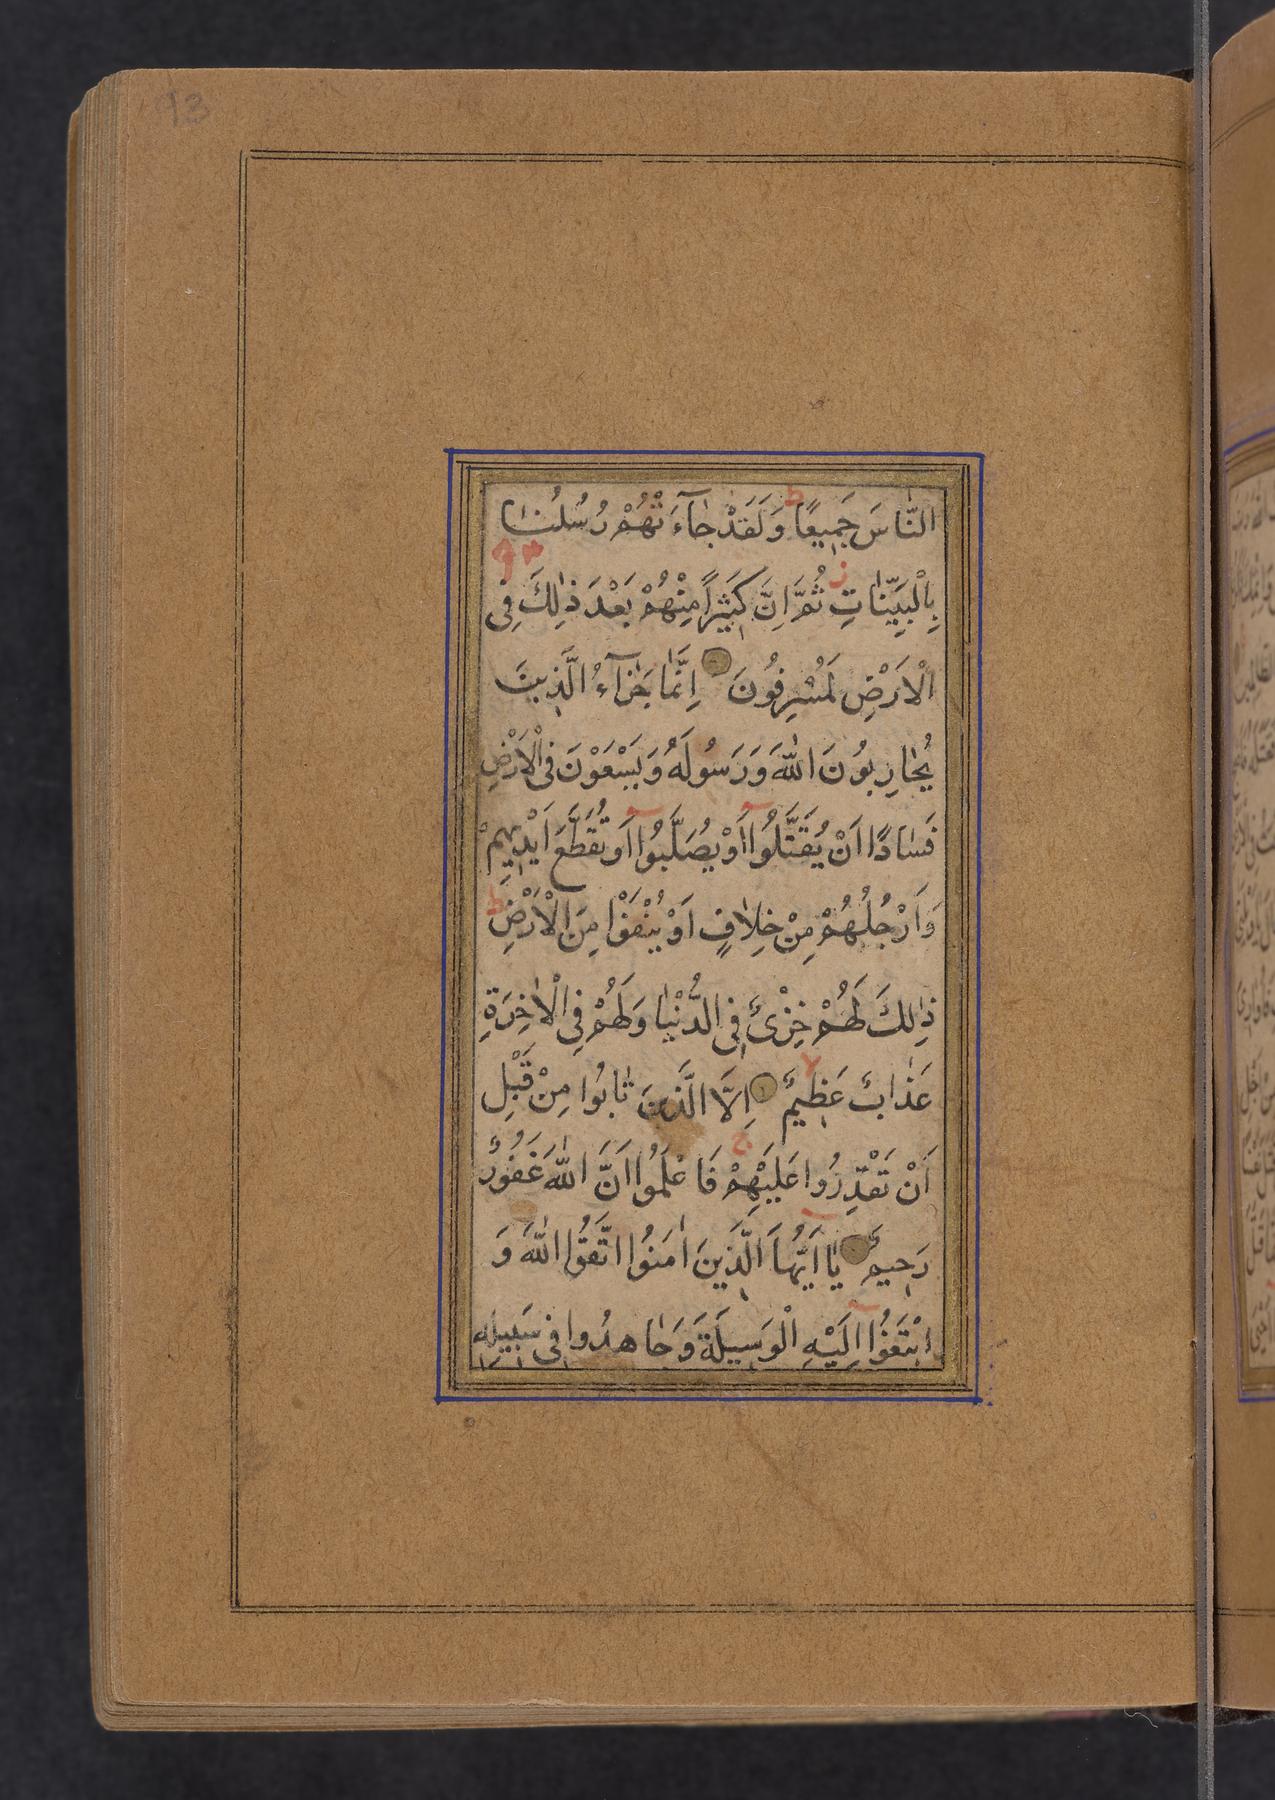 93
النَّاسَ جَمِيعًا ط وَلَقَدْ جَآءَتْهُمْ رُسُلُنَا
بِالْبَيِّنَاتِ ز ثُمَّ اِنَّ كَثِيرًا مِنْهُمْ بَعْدَ ذٰلِكَ فِى
الْاَرْضِ لَمُسْرِفُونَ اِنَّمَا جَزٰٓاءُ الَّذِينَ
يُحَارِبُونَ اللّٰهَ وَرَسُولَهُ وَيَسْعَوْنَ فِى الْاَرْضِ
فَسَادًا اَنْ يُقَتَّلُوا اَوْ يُصَلَّبُوا اَوْ تُقَطَّعَ اَيْدِيهِمْ
وَاَرْجُلُهُمْ مِنْ خِلَافٍ اَوْ يُنْفَوْا مِنَ الْاَرْضِ ط
ذٰلِكَ لَهُمْ خِزْىٌ فِى الدُّنْيَا وَلَهُمْ فِى الْاٰخِرَةِ
عَذَابٌ عَظِيمٌ لا اِلَّا الَّذِينَ تَابُوا مِنْ قَبْلِ
اَنْ تَقْدِرُوا عَلَيْهِمْ ج فَاعْلَمُوا اَنَّ اللّٰهَ غَفُورٌ
رَحِيمٌ يَا اَيُّهَا الَّذِينَ اٰمَنُوا اتَّقُوا اللّٰهَ وَ
ابْتَغُوا اِلَيْهِ الْوَسِيلَةَ وَجَاهِدُوا فِى سَبِيلِهِ